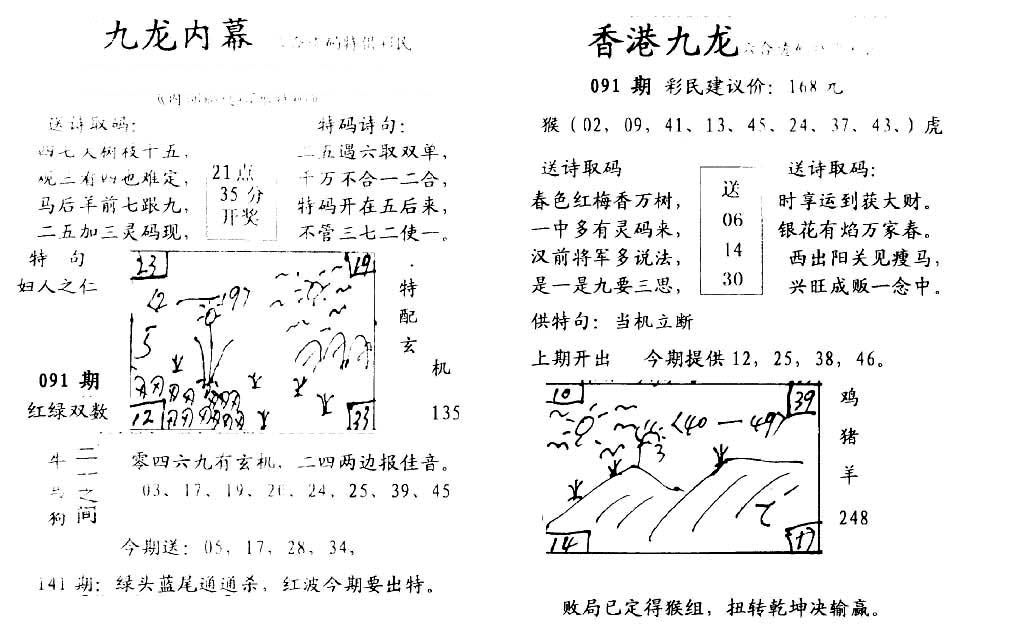 九龙内幕
送诗取码：
四七天树枝十五，
观三有四也难定，
马后羊前七跟九，
二五加三灵码现，
21点
35分
开奖
特码诗句：
二五遇六取双单，
千万不合一二合，
特码开在五后来，
不管三七二使一。
特 句
妇人之仁
23
19
12 — 19
5
12
33
特
配
玄
机
135
091 期
红绿双数
牛
马
狗
之
间
零四六九有玄机，二四两边报佳音。
03、17、19、20、24、25、39、45
今期送：05，17，28，34，
141 期：绿头蓝尾通通杀，红波今期要出特。
香港九龙
091 期 彩民建议价：168 元
猴（02，09，41，13，45，24，37，43、）虎
送诗取码
春色红梅香万树，
一中多有灵码来，
汉前将军多说法，
是一是九要三思，
送
06
14
30
送诗取码：
时享运到获大财。
银花有焰万家春。
西出阳关见瘦马，
兴旺成贩一念中。
供特句：当机立断
上期开出 今期提供 12，25，38，46。
10
39
〈40 — 49〉
3
14
17
鸡
猪
羊
248
败局已定得猴组，扭转乾坤决输赢。